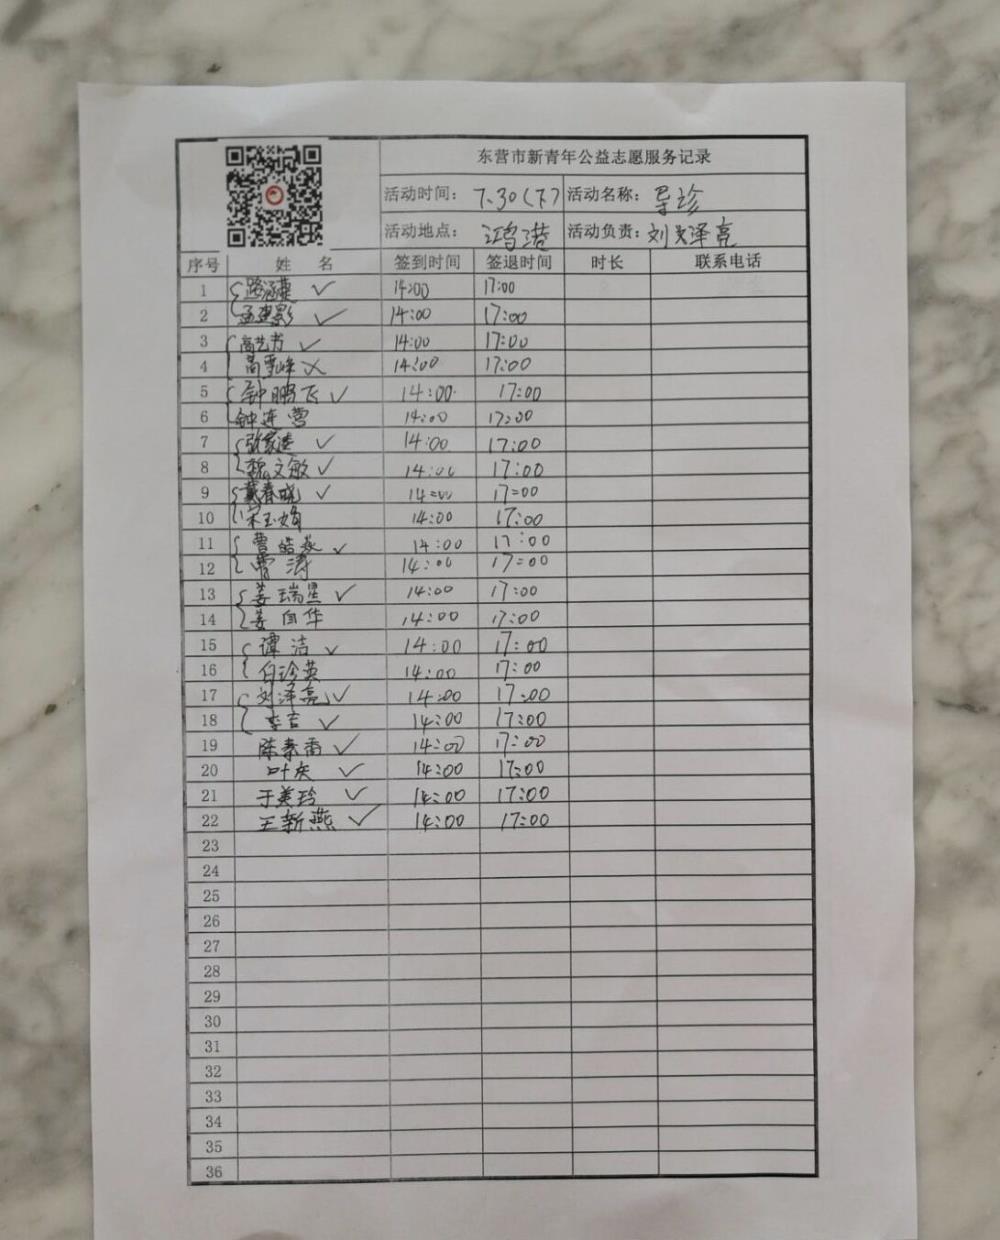 东营市新青年公益志愿服务记录
活动时间： 7.30(下) 活动名称： 导诊
活动地点： 鸿港 活动负责： 刘泽亮
序号 姓 名 签到时间 签退时间 时长 联系电话
1 路涵萱 ✓ 14:00 17:00
2 孟建影 ✓ 14:00 17:00
3 高艺书 ✓ 14:00 17:00
4 高雪峰 ✓ 14:00 17:00
5 钟鹏飞 ✓ 14:00 17:00
6 钟连营 14:00 17:00
7 张家 ✓ 14:00 17:00
8 魏文敏 ✓ 14:00 17:00
9 戴春晓 ✓ 14:00 17:00
10 宋玉娟 14:00 17:00
11 曹皓 ✓ 14:00 17:00
12 曹涛 14:00 17:00
13 姜瑞星 ✓ 14:00 17:00
14 姜自华 14:00 17:00
15 谭洁 ✓ 14:00 17:00
16 白珍英 14:00 17:00
17 刘泽亮 ✓ 14:00 17:00
18 李吉 ✓ 14:00 17:00
19 陈素雷 ✓ 14:00 17:00
20 叶庆 ✓ 14:00 17:00
21 于美玲 ✓ 14:00 17:00
22 王新燕 ✓ 14:00 17:00
23
24
25
26
27
28
29
30
31
32
33
34
35
36